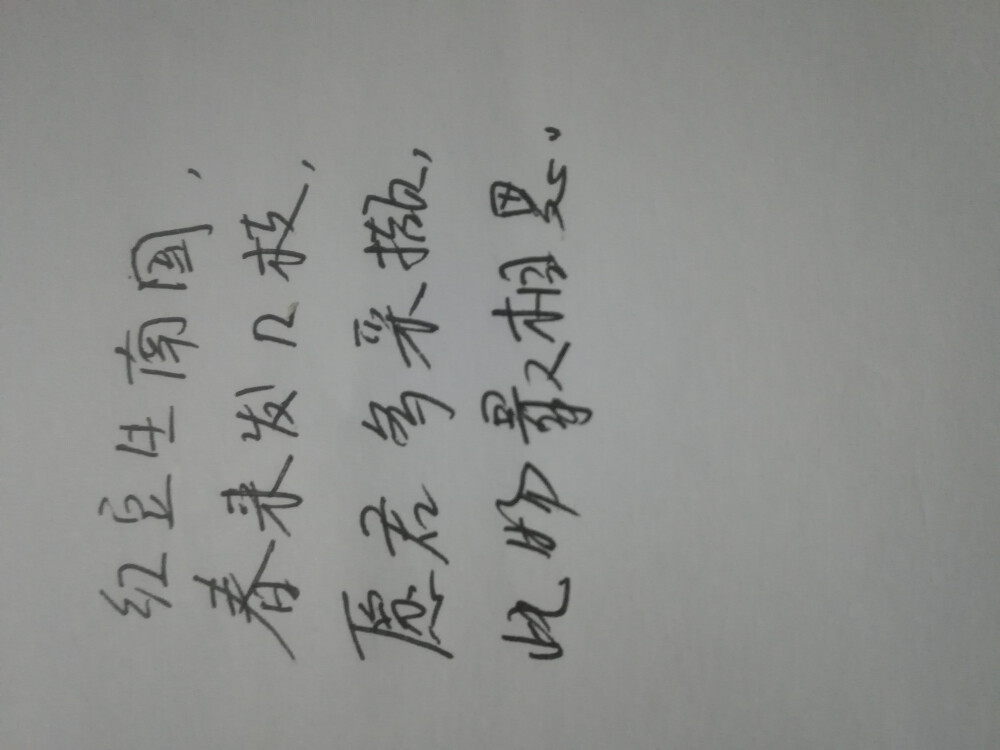 红豆生南国，
春来发几枝，
愿君多采撷，
此物最相思。